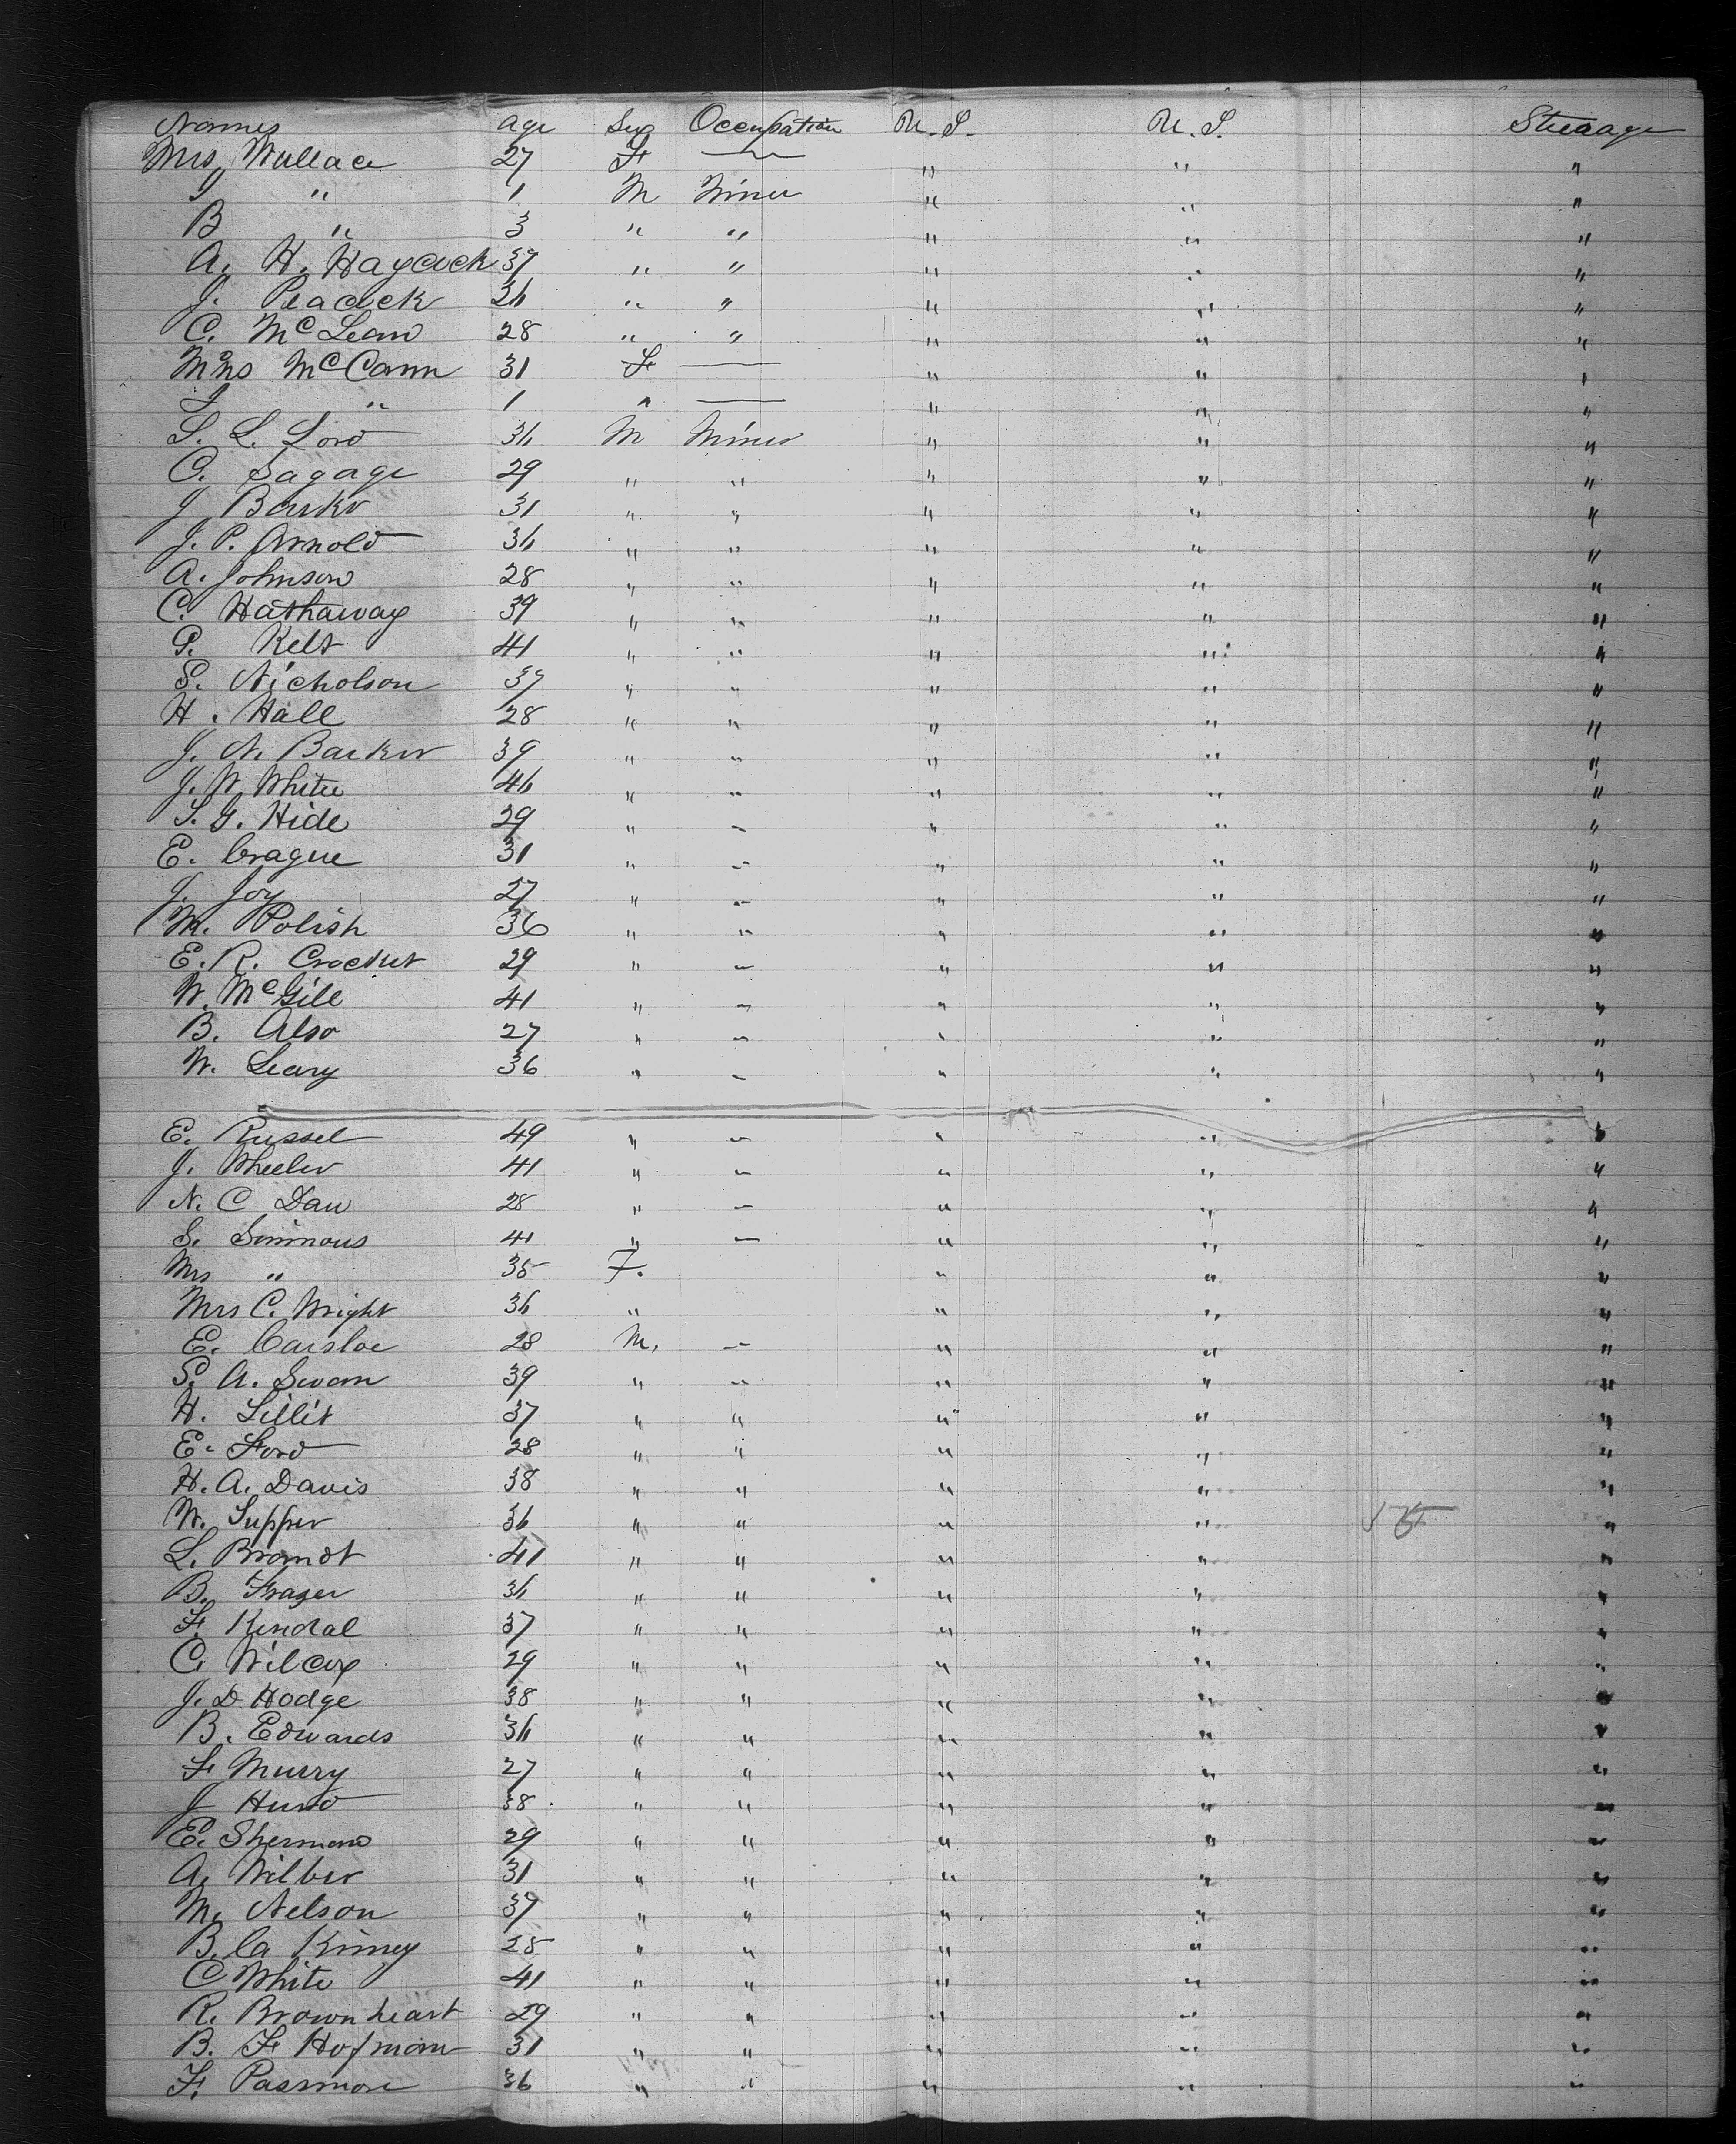 Names age Sex Occupation U.S. U.S. Steerage
Mrs Wallace 27 F — " " "
J " 1 M Miner " " "
B " 3 " " " " "
A. H. Haycock 37 " " " " "
J. Peacock 26 " " " " "
C. McLean 28 " " " " "
Mrs McCann 31 F — " " "
" 1 " — " " "
S. L. Lord 36 M Miner " " "
O. Sagage 29 " " " " "
J Barker 31 " " " " "
J. P. Arnold 36 " " " " "
A. Johnson 28 " " " " "
C. Hathaway 39 " " " " "
P. Kelt 41 " " " " "
S. Nicholson 37 " " " " "
H. Hall 28 " " " " "
J. N. Barker 39 " " " " "
J. W White 46 " " " " "
S. G. Hide 29 " " " " "
E. Cragne 31 " " " " "
J. Joy 27 " " " " "
M. Polish 36 " " " " "
E. R. Crocket 29 " " " " "
W. McGill 41 " " " " "
B. Also 27 " " " " "
W. Leary 36 " " " " "
E. Russel 49 " " " " "
J. Wheeler 41 " " " " "
N. C Daw 28 " " " " "
S. Simmons 41 " " " " "
Mrs " 35 F. " " "
Mrs C. Wright 36 " " " "
E. Carsloe 28 M. " " " "
S. A. Swan 39 " " " " "
H. Lillit 37 " " " " "
E. Ford 28 " " " " "
H. A. Davis 38 " " " " "
W. Supper 36 " " " " "
L. Brandt 41 " " " " "
B. Frazer 36 " " " " "
F. Kendal 37 " " " " "
C. Wilcox 29 " " " " "
J. D Hodge 38 " " " " "
B. Edwards 36 " " " " "
F Murry 27 " " " " "
J Hurd 38 " " " " "
E. Sherman 29 " " " " "
A. Wilber 31 " " " " "
M. Nelson 37 " " " " "
B. Ca Kinney 28 " " " " "
C White 41 " " " " "
R. Brownheart 29 " " " " "
B. F Hofman 31 " " " " "
F. Passmore 36 " " " " "